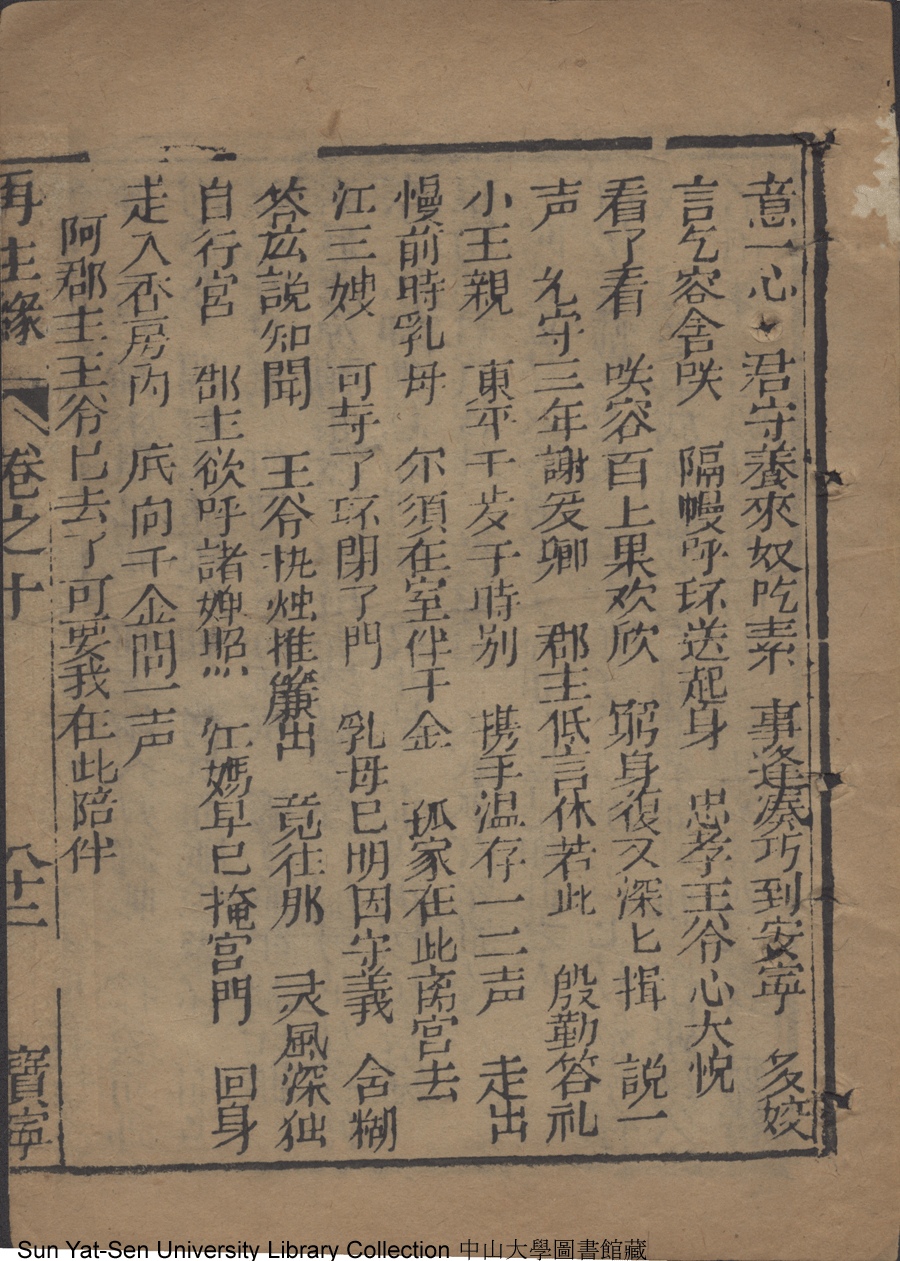 意一心 君守養來奴吃素 事逢凑巧到安寧 多姣
言乞容舎咲 隔幔呼环送起身 忠孝王爷心大悅
看了看 咲容百上果欢欣 躬身復又深匕揖 說一
声 允守三年謝爱卿 郡主低言休若此 殷勤答礼
小王親 東平千岁于時别 携手温存一二声 走出
慢前時乳母 尔須在室伴千金 孤家在此离宮去
江三嫂 可寺了环閉了門 乳母已明因守義 含糊
答応說知聞 王爷执烛推簾出 竟往那 灵風深独
自行宮 郡主欲呼諸婢照 江媽早已掩宮門 回身
走入香房内 底向千金問一声
阿郡主王爷已去了可要我在此陪伴
再生緣 卷之十 八十二 寶寧
Sun Yat-Sen University Library Collection 中山大學圖書館藏